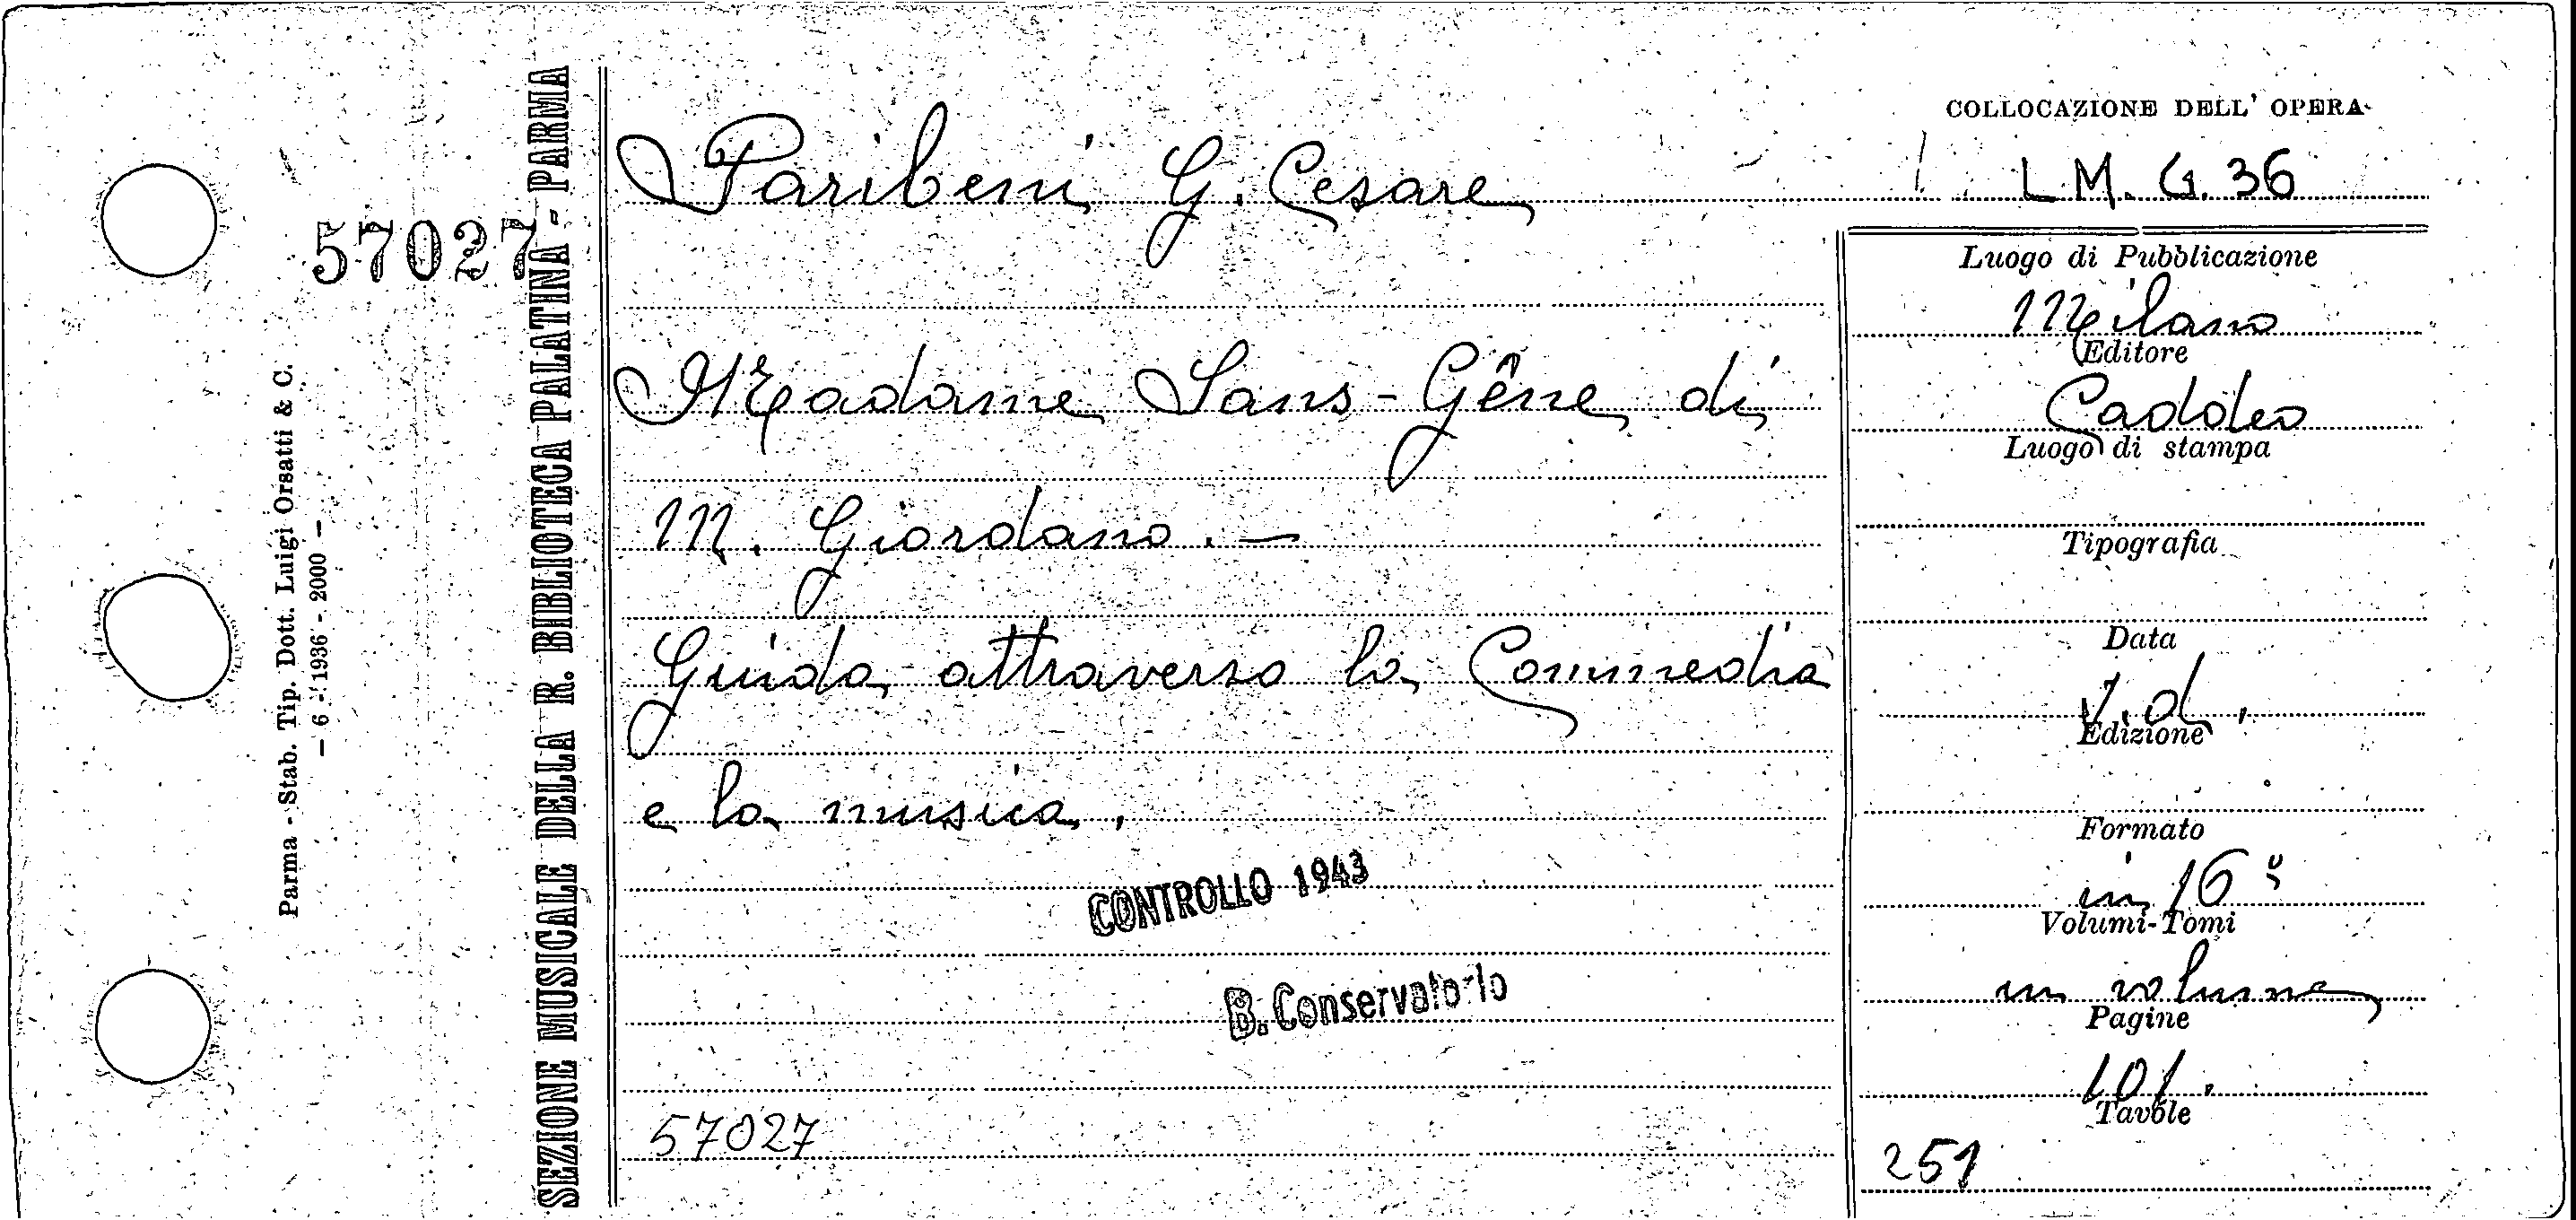 57027
Parma - Stab. Tip. Dott. Luigi Orsati & C.
- 6 - 1936 - 2000 -
SEZIONE MUSICALE DELLA R. BIBLIOTECA PALATINA - PARMA
Paribeni G. Cesare
Madame Sans-Gêne di
M. Giordano. —
Guida attraverso la Commedia
e la musica.
CONTROLLO 1943
B. Conservatorio
57027
COLLOCAZIONE DELL' OPERA
L M. G. 36
Luogo di Pubblicazione
Milano
Editore
Caddeo
Luogo di stampa
Tipografia
Data
s.d.
Edizione
Formato
in 16º
Volumi-Tomi
un volume
Pagine
101.
Tavole
251